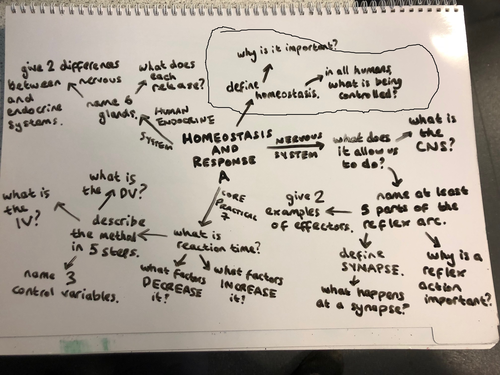 why is it important?
define
homeostasis.
in all humans,
what is being
controlled?
give 2 differences
between nervous
and
endocrine
systems.
what does
each
release?
name 6
glands.
HUMAN
ENDOCRINE
SYSTEM
HOMEOSTASIS
AND
RESPONSE
A
NERVOUS
SYSTEM
what does
it allow us
to do?
what is
the
CNS?
name at least
5 parts of the
reflex arc.
give 2
examples
of effectors.
define
SYNAPSE.
what happens
at a synapse?
why is a
reflex
action
important?
CORE
PRACTICAL
7
what is
reaction time?
what factors
DECREASE
it?
what factors
INCREASE
it?
describe
the method
in 5 steps.
what is
the DV?
what is
the
IV?
name 3
control variables.